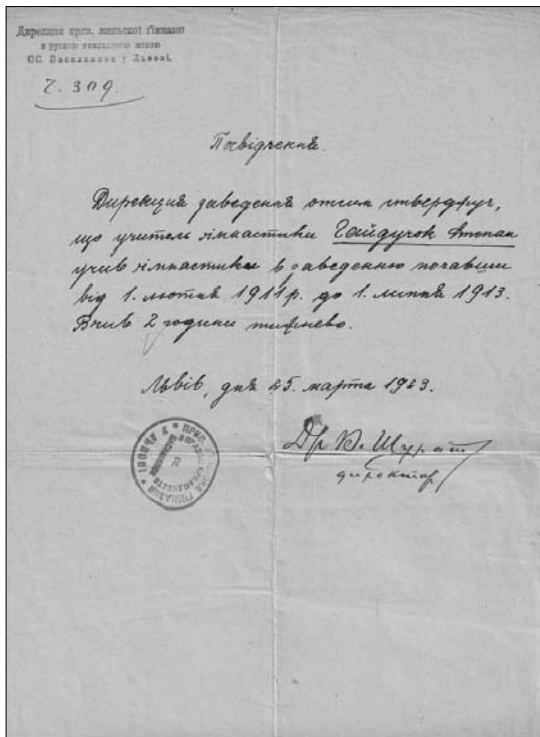 Дирекция прив. женьскої гімназиї
з руским викладовим
СС. Василиянок у Львові.
Ч. 309.
Посвідченя.
Дирекция заведеня отсим стверджує,
що учитель гімнастики Гайдучок Степан
учив гімнастики в заведеню почавши
від 1. лютня 1911 р. до 1. липня 1913.
Вчив 2 години тижнево.
Львів, дня 25. марта 1923.
Др В. Щурат
директор